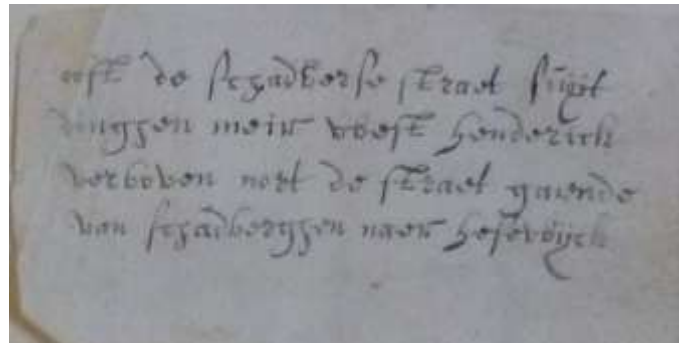 oost de schadberse straet suijt
dinghen meir west henderick
verboven nort de straet gaende
van schadberghen naer hesewijck